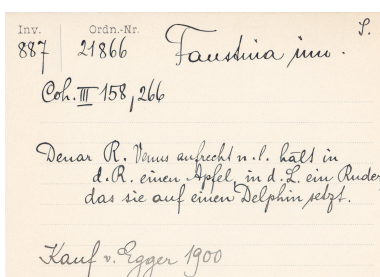 Inv. Ordn.-Nr. S.
887 21866 Faustina iun.
Coh. III 158, 266
Denar R. Venus aufrecht n. l. hält in
d. R. einen Apfel, in d. L. ein Ruder,
das sie auf einen Delphin setzt.
Kauf v. Egger 1900